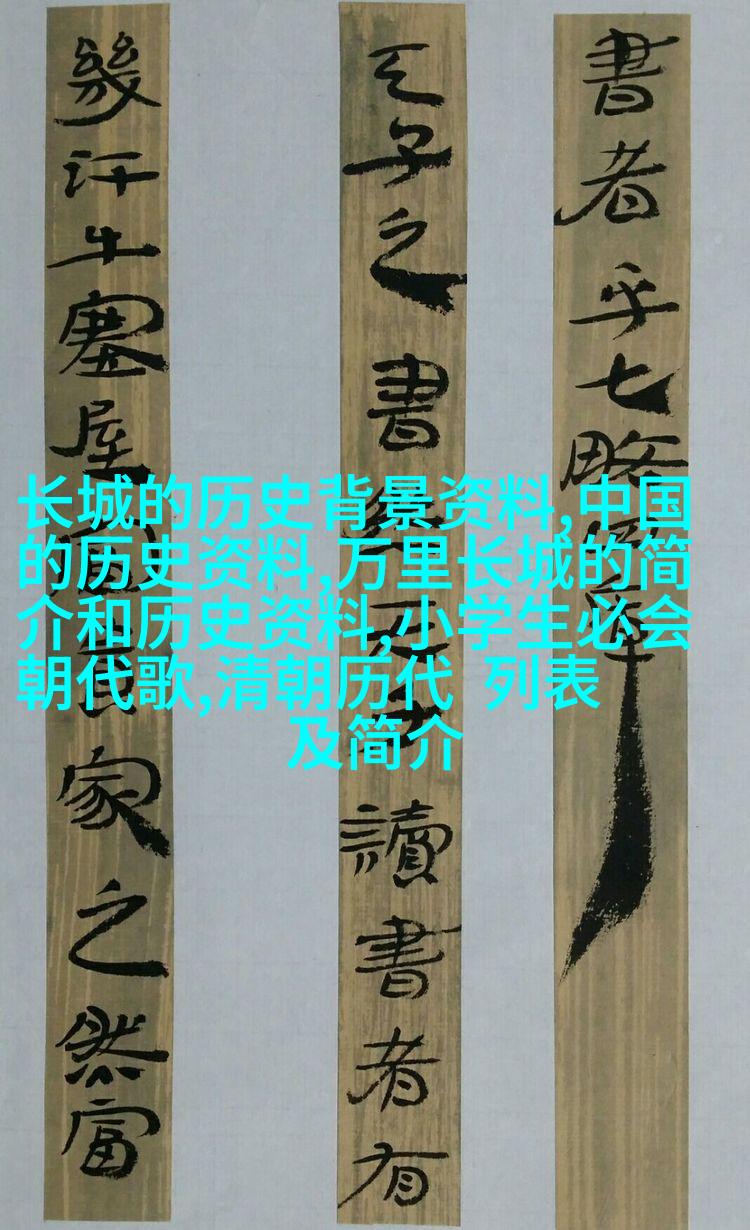 書者乎七略
天子之書 讀書者有
幾汗牛塞屋 家之然富
长城的历史背景资料,中国
的历史资料,万里长城的简
介和历史资料,小学生必会
朝代歌,清朝历代 列表
及简介